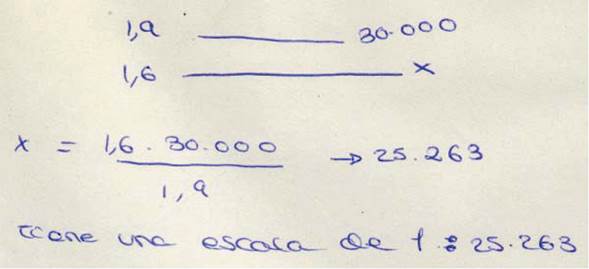 1,9 ——— 30.000
1,6 ——— x
x = 1,6 . 30.000 / 1,9 → 25.263
tiene una escala de 1:25.263